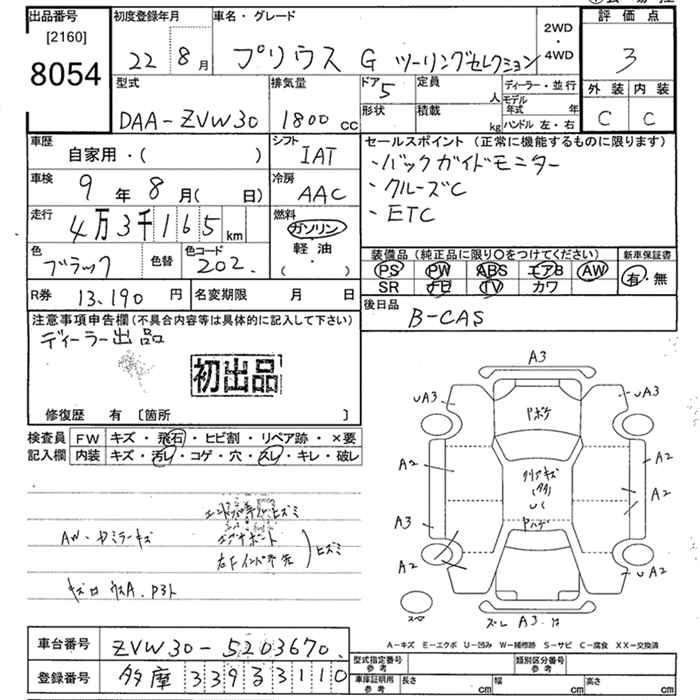 出品番号
[2160]
8054
初度登録年月
22 8月
車名・グレード
プリウス G ツーリングセレクション
2WD
・
4WD
評価点
3
外装 内装
C C
型式
DAA-ZVW30
排気量
1800 cc
ドア 5
形状
定員
人
積載
kg
ディーラー・並行
モデル年式 年
ハンドル 左・右
車歴
自家用・( )
シフト
IAT
車検
9年8月( 日)
冷房
AAC
走行
4万3千165km
燃料
ガソリン
・
軽油
( )
色
ブラック
色替
色コード
202
R券 13,190円
名変期限 月 日
セールスポイント(正常に機能するものに限ります)
・バックガイドモニター
・クルーズC
・ETC
装備品(純正品に限り○をつけてください)
PS PW ABS エアB AW
SR ナビ TV カワ
新車保証書
有・無
後日品
B-CAS
注意事項申告欄(不具合内容等は具体的に記入して下さい)
ディーラー出品
初出品
修復歴 有 〔箇所 〕
検査員記入欄
FW キズ・飛石・ヒビ割・リペア跡・×要
内装 キズ・汚レ・コゲ・穴・スレ・キレ・破レ
ヒズミ
A3
UA3
UA3
A2
A2
A2
A3
A2
UA2
スペア
A-キズ E-エクボ U-凹み W-補修跡 S-サビ C-腐食 XX-交換済
車台番号 ZVW30-5203670
登録番号 多摩 33933110
型式指定番号 参考
類別区分番号 参考
車庫証明用 参考
長さ cm
幅 cm
高さ cm